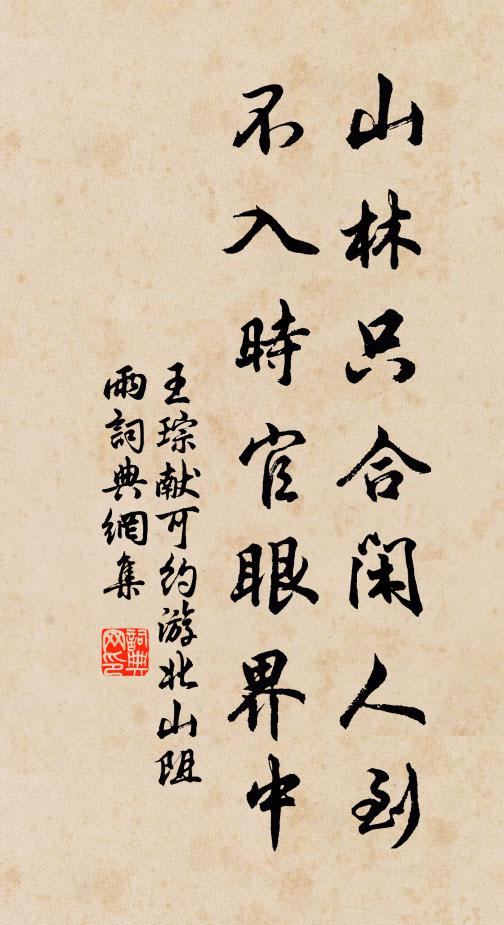 山林只合閑人到
不入時官眼界中
王琮献可約游北山阻
雨詞典網集
詞典
网印